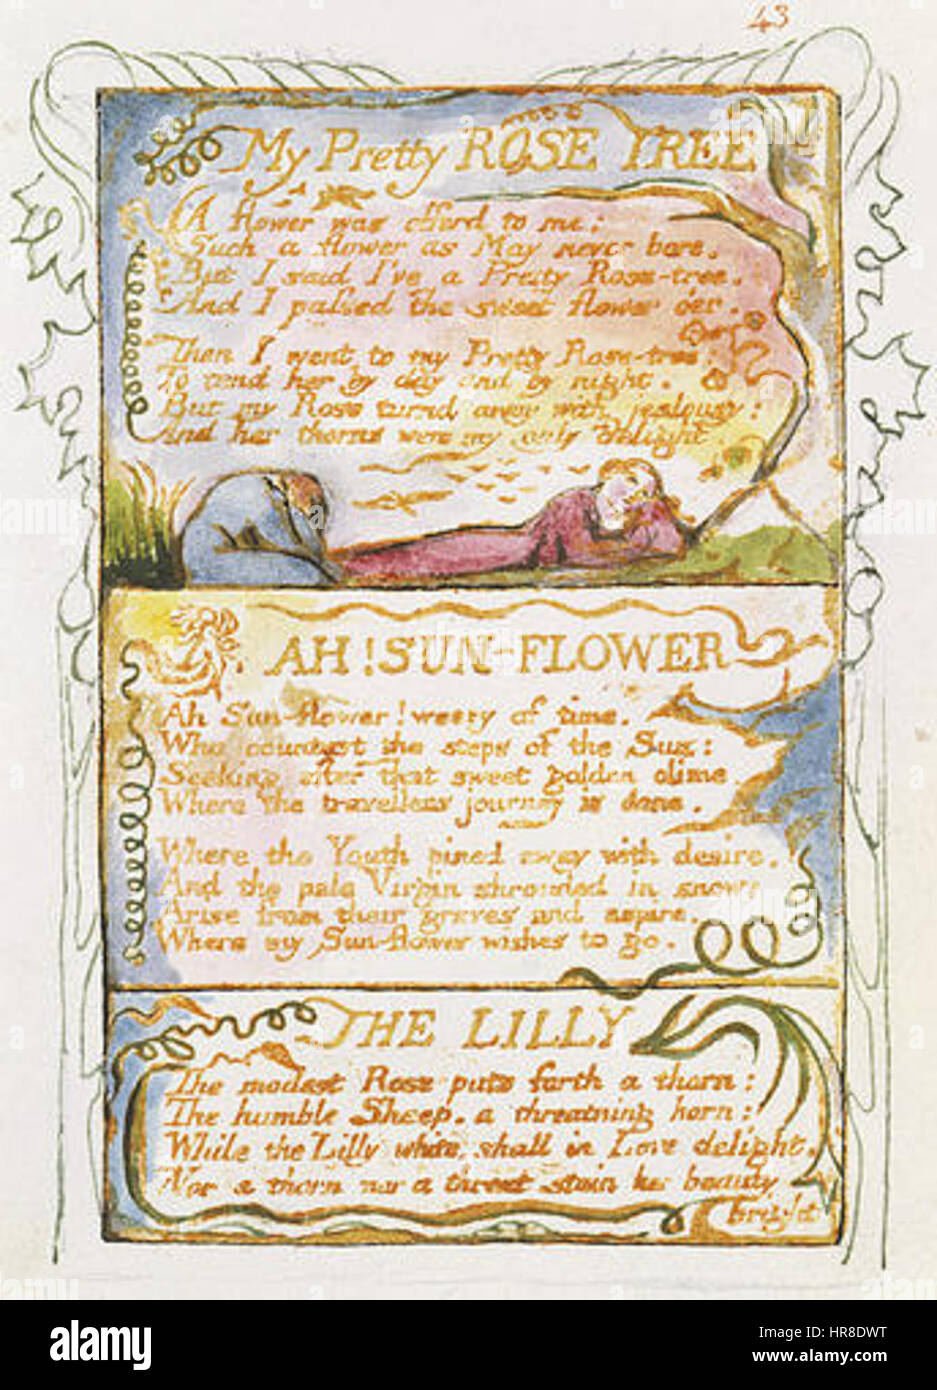 43
My Pretty ROSE TREE
A flower was offerd to me:
Such a flower as May never bore.
But I said I've a Pretty Rose-tree.
And I passed the sweet flower o'er.
Then I went to my Pretty Rose-tree:
To tend her by day and by night.
But my Rose turnd away with jealousy:
And her thorns were my only delight.
AH! SUN-FLOWER
Ah Sun-flower! weary of time.
Who countest the steps of the Sun:
Seeking after that sweet golden clime
Where the travellers journey is done.
Where the Youth pined away with desire,
And the pale Virgin shrouded in snow:
Arise from their graves and aspire,
Where my Sun-flower wishes to go.
THE LILLY
The modest Rose puts forth a thorn:
The humble Sheep. a threatning horn:
While the Lilly white, shall in Love delight,
Nor a thorn nor a threat stain her beauty
bright
alamy
Image ID: HR8DWT
www.alamy.com